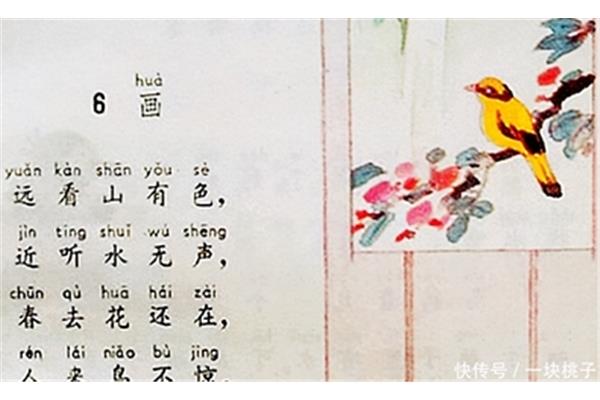 huà
6 画
yuǎn kàn shān yǒu sè
远看山有色，
jìn tīng shuǐ wú shēng
近听水无声，
chūn qù huā hái zài
春去花还在，
rén lái niǎo bù jīng
人来鸟不惊，
快传号 / 一块桃子